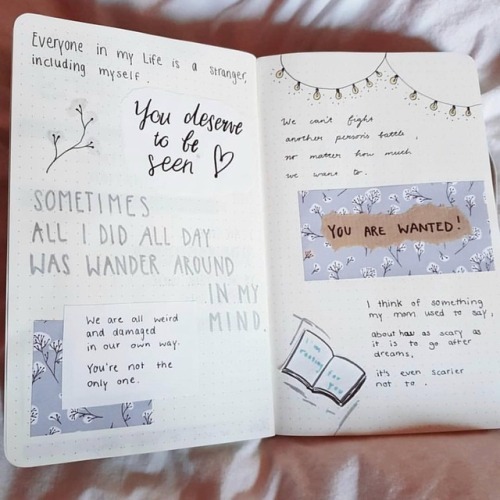 Everyone in my Life is a stranger,
including myself.
You deserve
to be
seen
SOMETIMES
ALL I DID ALL DAY
WAS WANDER AROUND
IN MY
MIND.
We are all weird
and damaged
in our own way.
You're not the
only one.
We can't fight
another person's battle,
no matter how much
we want to.
YOU ARE WANTED!
I think of something
my mom used to say,
about how as scary as
it is to go after
dreams,
it's even scarier
not to.
i am
rooting for
you